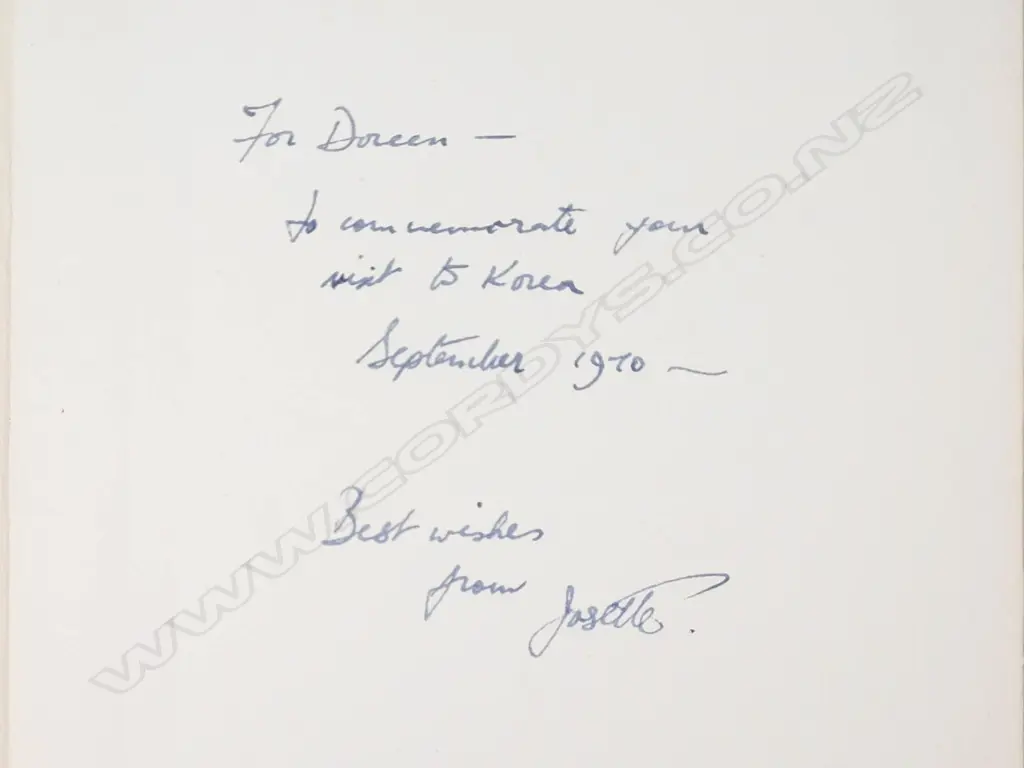 For Doreen —
to commemorate your
visit to Korea
September 1970 —
Best wishes
from Josette.
WWW.CORDYS.CO.NZ